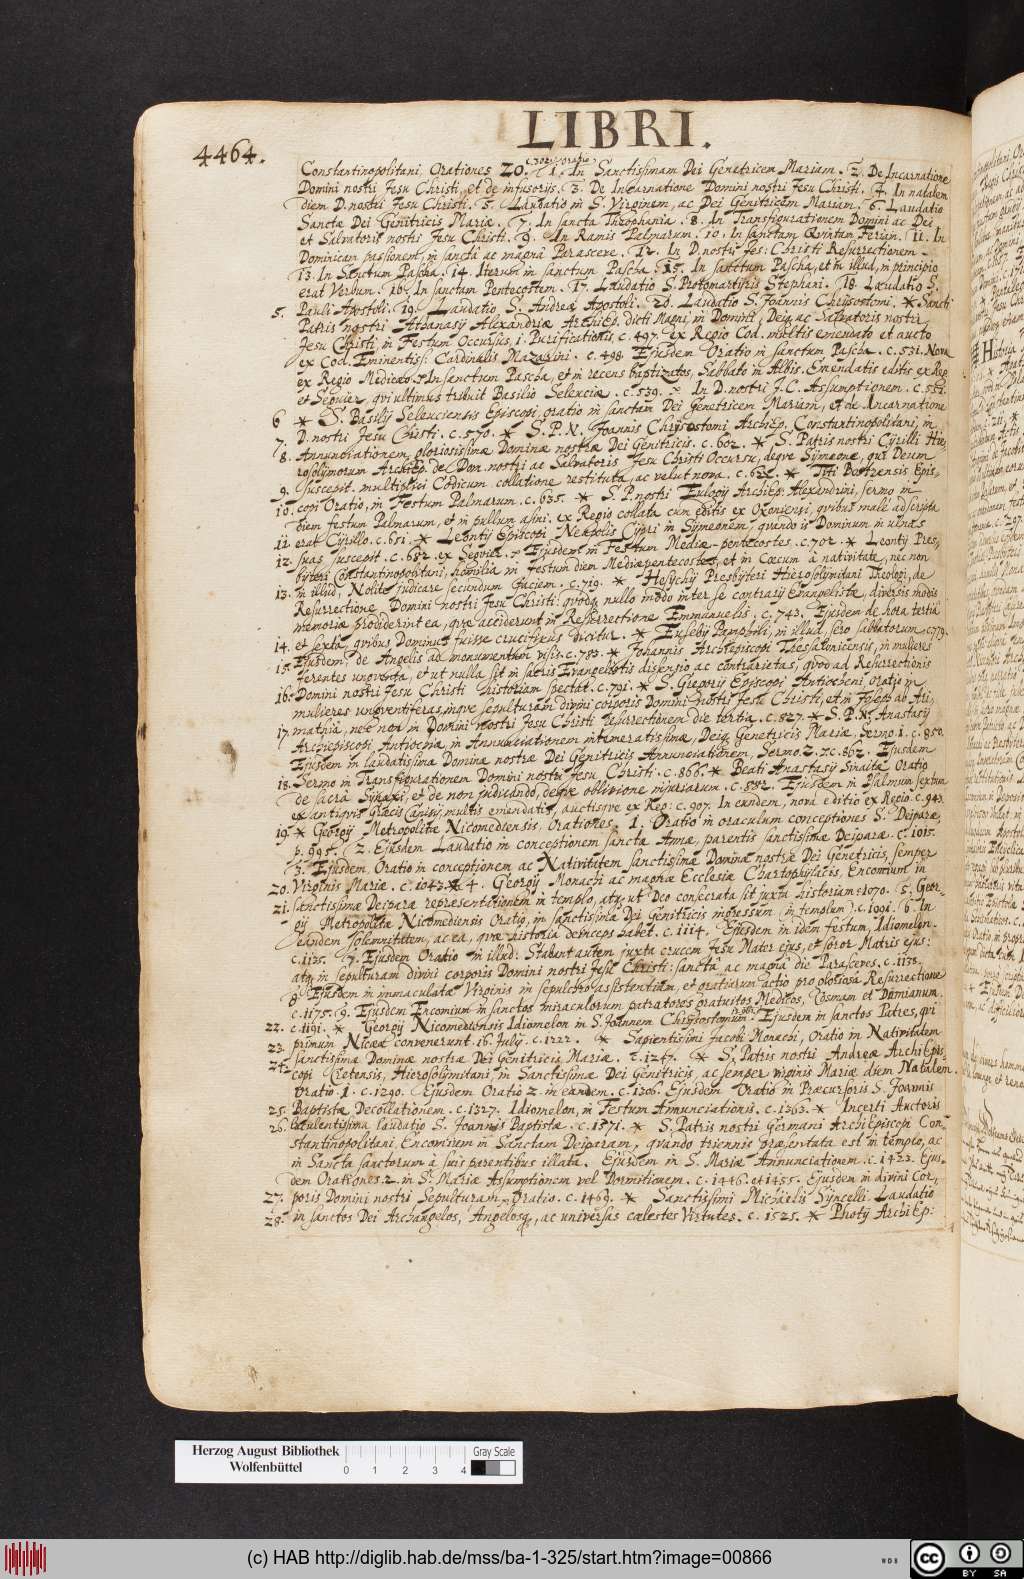 LIBRI.
4464.
Constantinopolitani, Orationes 20. 1. In Sanctissimam Dei Genetricem Mariam. 2. De Incarnatione
Domini nostri Jesu Christi, et de infusorijs. 3. De Incarnatione Domini nostri Jesu Christi. 4. In natalem
diem D. nostri Jesu Christi. 5. Laudatio in S. Virginem, ac Dei Genitricem Mariam. 6. Laudatio
Sanctæ Dei Genitricis Mariæ. 7. In sancta Theophania. 8. In Transfigurationem Domini ac Dei
et Salvatoris nostri Jesu Christi. 9. In Ramis Palmarum. 10. In sanctam Qvintam Feriam. 11. In
Dominicam passionem, in sancta ac magnâ Parasceve. 12. In D. nostri Jes: Christi Resurrectionem.
13. In Sanctum Pascha. 14. Iterum in sanctum Pascha. 15. In sanctum Pascha, et in illud, in principio
erat Verbum. 16. In sanctam Pentecostem. 17. Laudatio S. Protomartyris Stephani. 18. Laudatio S.
5. Pauli Apostoli. 19. Laudatio S. Andreæ Apostoli. 20. Laudatio S. Joannis Chrysostomi. * Sancti
Patris nostri Athanasij Alexandriæ ArchiEp. dicti Magni, in Domini, Deiq, ac Salvatoris nostri
Jesu Christi in Festum Occursus, i. Purificationis, c. 497. ex Regio Cod. multis emendato et aucto
ex Cod. Eminentiss: Cardinalis Mazarini. c. 498. Ejusdem Oratio in sanctum Pascha. c. 531. Nova
ex Regio Mediceo. In sanctum Pascha, et in recens baptizatos, Sabbato in Albis. Emendatis editis ex Reg.
et Seguier, qvi ultimus tribuit Basilio Seleuciæ. c. 539. In D. nostri J. C. Assumptionem. c. 561.
6 * S. Basilij Seleuciensis Episcopi, oratio in sanctam Dei Genetricem Mariam, et de Incarnatione
7. D. nostri Jesu Christi. c. 570. * S. P. N. Joannis Chrysostomi ArchiEp. Constantinopolitani, in
8. Annunciationem gloriosissimæ Dominæ nostræ Dei Genitricis. c. 602. * S. Patris nostri Cyrilli Hie-
rosolymorum ArchiEp. de Dom. nostri ac Salvatoris Jesu Christi Occursu, deqve Symeone, qui Deum
9. suscepit. multiplici Codicum collatione restituta, ac velut nova. c. 622. * Titi Bostrensis Epis-
10. copi Oratio, in Festum Palmarum. c. 635. * S. P. nostri Eulogij ArchiEp. Alexandrini, sermo in
diem festum Palmarum, et in pullum asini. ex Regio collata cum editis ex Oxoniensi, qvibus malè adscripta
11 erat Cyrillo. c. 651. * Leontij Episcopi Neapolis Cypri in Symeonem, qvando is Dominum in ulnas
12. suas suscepit. c. 682. ex Seguier. Ejusdem in Festum Mediæ-pentecostes. c. 702. * Leontij Pres-
byteri Constantinopolitani, homilia in Festum diem Mediæpentecostes, et in Cæcum à nativitate, nec non
13. in illud, Nolite judicare secundum faciem. c. 719. * Hesychij Presbyteri Hierosolymitani Theologi, de
Resurrectione Domini nostri Jesu Christi: qvodq nullo modo inter se contrarij Evangelistæ, diversis modis
memoriæ prodiderint ea, qvæ acciderunt in Resurrectione Emmanuelis. c. 743. Ejusdem de hora tertia
14. et sexta, qvibus Dominus fuisse crucifixus dicitur. * Eusebij Pamphili, in illud, sero sabbatorum c. 779.
15. Ejusdem, de Angelis ad monumentum visis. c. 783. * Johannis Archiepiscopi Thessalonicensis, in mulieres
ferentes ungventa, et ut nulla sit in sacris Evangelistis dissensio ac contrarietas, qvod ad Resurrectionis
16. Domini nostri Jesu Christi historiam spectat. c. 791. * S. Gregorij Episcopi Antiocheni Oratio in
mulieres ungventiferas, inqve sepulturam divini corporis Domini nostri Jesu Christi, et in Joseph ab Ari-
17. mathia, nec non in Domini nostri Jesu Christi Resurrectionem die tertia. c. 827. * S. P. N. Anastasij
Archiepiscopi Antiochiæ, in Annunciationem intemeratissimæ, Deiq Genetricis Mariæ, Sermo 1. c. 850.
Ejusdem in laudatissimæ Dominæ nostræ Dei Genitricis Annunciationem, Sermo. 2. c. 862. Ejusdem
18. Sermo in Transfigurationem Domini nostri Jesu Christi. c. 866. * Beati Anastasij Sinaitæ Oratio
de sacrâ Synaxi, et de non judicando, deqve oblivione injuriarum. c. 882. Ejusdem in Psalmum sextum
ex antiqvis Græcis Canisij, multis emendatis, auctisqve ex Reg. c. 907. In eundem, nova editio ex Regio. c. 943.
19. * Georgij Metropolitæ Nicomediensis, Orationes. 1. Oratio in oraculum conceptiones S. Deiparæ,
p. 995. 2. Ejusdem Laudatio in conceptionem sanctæ Annæ, parentis sanctissimæ Deiparæ. c. 1015.
3. Ejusdem Oratio in conceptionem ac Nativitatem sanctissimæ Dominæ nostræ Dei Genetricis, semper
20. Virginis Mariæ. c. 1043. * 4. Georgij Monachi ac magnæ Ecclesiæ Chartophylacis, Encomium in
21. sanctissimæ Deiparæ repræsentationem in templo, atq ut Deo consecrata sit juxta historiam. c. 1070. 5. Geor-
gij Metropolitæ Nicomediensis Oratio, in sanctissimæ Dei Genitricis ingressum (in templum). c. 1091. 6. In
eandem solemnitatem, ac ea, qvæ historia deinceps habet. c. 1114. Ejusdem in idem festum, Idiomelon.
c. 1125. 7. Ejusdem Oratio in illud: Stabant autem juxta crucem Jesu Mater ejus, et soror Matris ejus:
atq in sepulturam divini corporis Domini nostri Jesu Christi: sanctâ ac magnâ die Parasceves. c. 1138.
8. Ejusdem in immaculatæ Virginis in sepulchro assistentiam, et gratiarum actio pro gloriosa Resurrectione
c. 1175. 9. Ejusdem Encomium in sanctos miraculorum patratores gratuitos Medicos, Cosmam et Damianum.
22. c. 1191. * Georgij Nicomediensis Idiomelon in S. Joannem Chrysostomum. Ejusdem in sanctos Patres, qvi
23. primum Nicææ convenerunt. 16. Julij. c. 1222. * Sapientissimi Jacobi Monachi, Oratio in Nativitatem
24. sanctissimæ Dominæ nostræ Dei Genitricis Mariæ. c. 1247. * S. Patris nostri Andreæ ArchiEpis-
copi Cretensis, Hierosolymitani, in Sanctissimæ Dei Genitricis, ac semper virginis Mariæ diem Natalem
Oratio. 1. c. 1290. Ejusdem Oratio 2. in eandem. c. 1306. Ejusdem Oratio in Præcursoris S. Joannis
25. Baptistæ Decollationem. c. 1327. Idiomelon, in Festum Annunciationis. c. 1363. * Incerti Auctoris
26. luculentissima laudatio S. Joannis Baptistæ. c. 1371. * S. Patris nostri Germani ArchiEpiscopi Con-
stantinopolitani Encomium in Sanctam Deiparam, qvando triennis præsentata est in templo, ac
in Sancta sanctorum à suis parentibus illata. Ejusdem in S. Mariæ Annunciationem. c. 1423. Ejus-
dem Orationes. 2. in S. Mariæ Assumptionem vel Dormitionem. c. 1446. et 1455. Ejusdem in divini Cor-
27. poris Domini nostri Sepulturam Oratio. c. 1469. * Sanctissimi Michaelis Syncelli Laudatio
28. in sanctos Dei Archangelos, Angelosq, ac universas cælestes Virtutes. c. 1525. * Photij ArchiEp:
Herzog August Bibliothek
Wolfenbüttel
0 1 2 3 4
Gray Scale
(c) HAB http://diglib.hab.de/mss/ba-1-325/start.htm?image=00866
WDB
cc BY SA